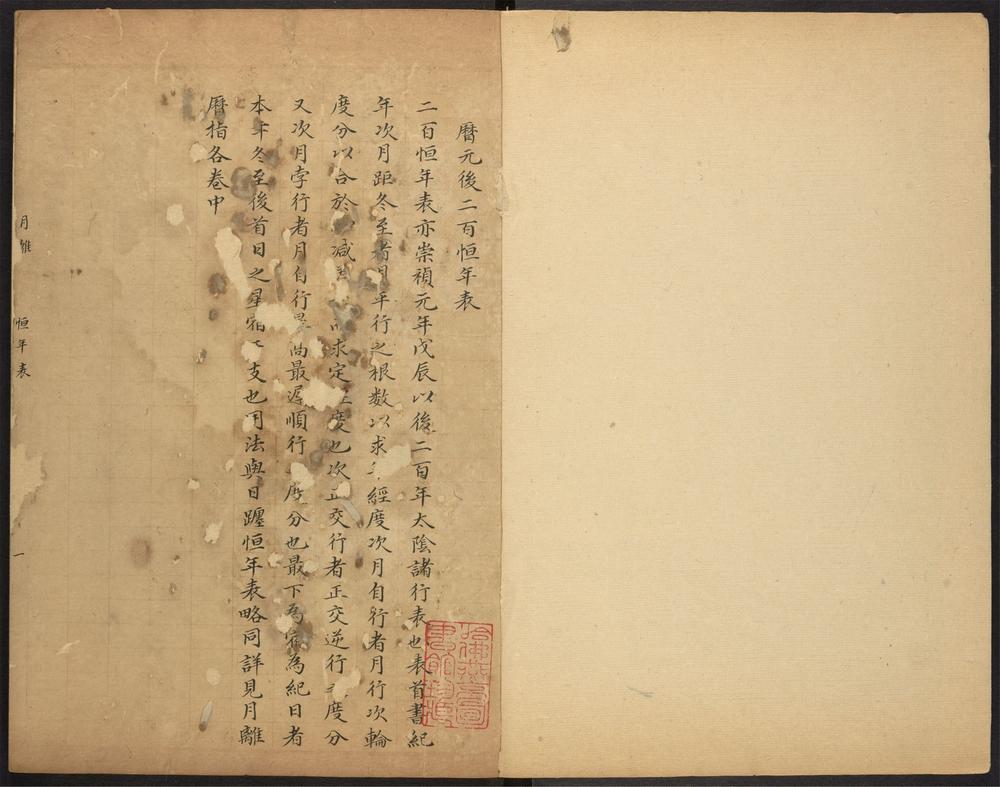 曆元後二百恒年表
二百恒年表亦崇禎元年戊辰以後二百年太陰諸行表也表首書紀
年次月距冬至者平行之根數以求經度次月自行者月行次輪
度分以合於減求定度也次交行者正交逆行度分
又次月孛行者月自行最高最遲順行度分也最下為宿為紀日者
本年冬至後首日之星宿支也用法與日躔恒年表略同詳見月離
曆指各卷中
月離 恒年表 一
哈佛燕京圖書館珍藏